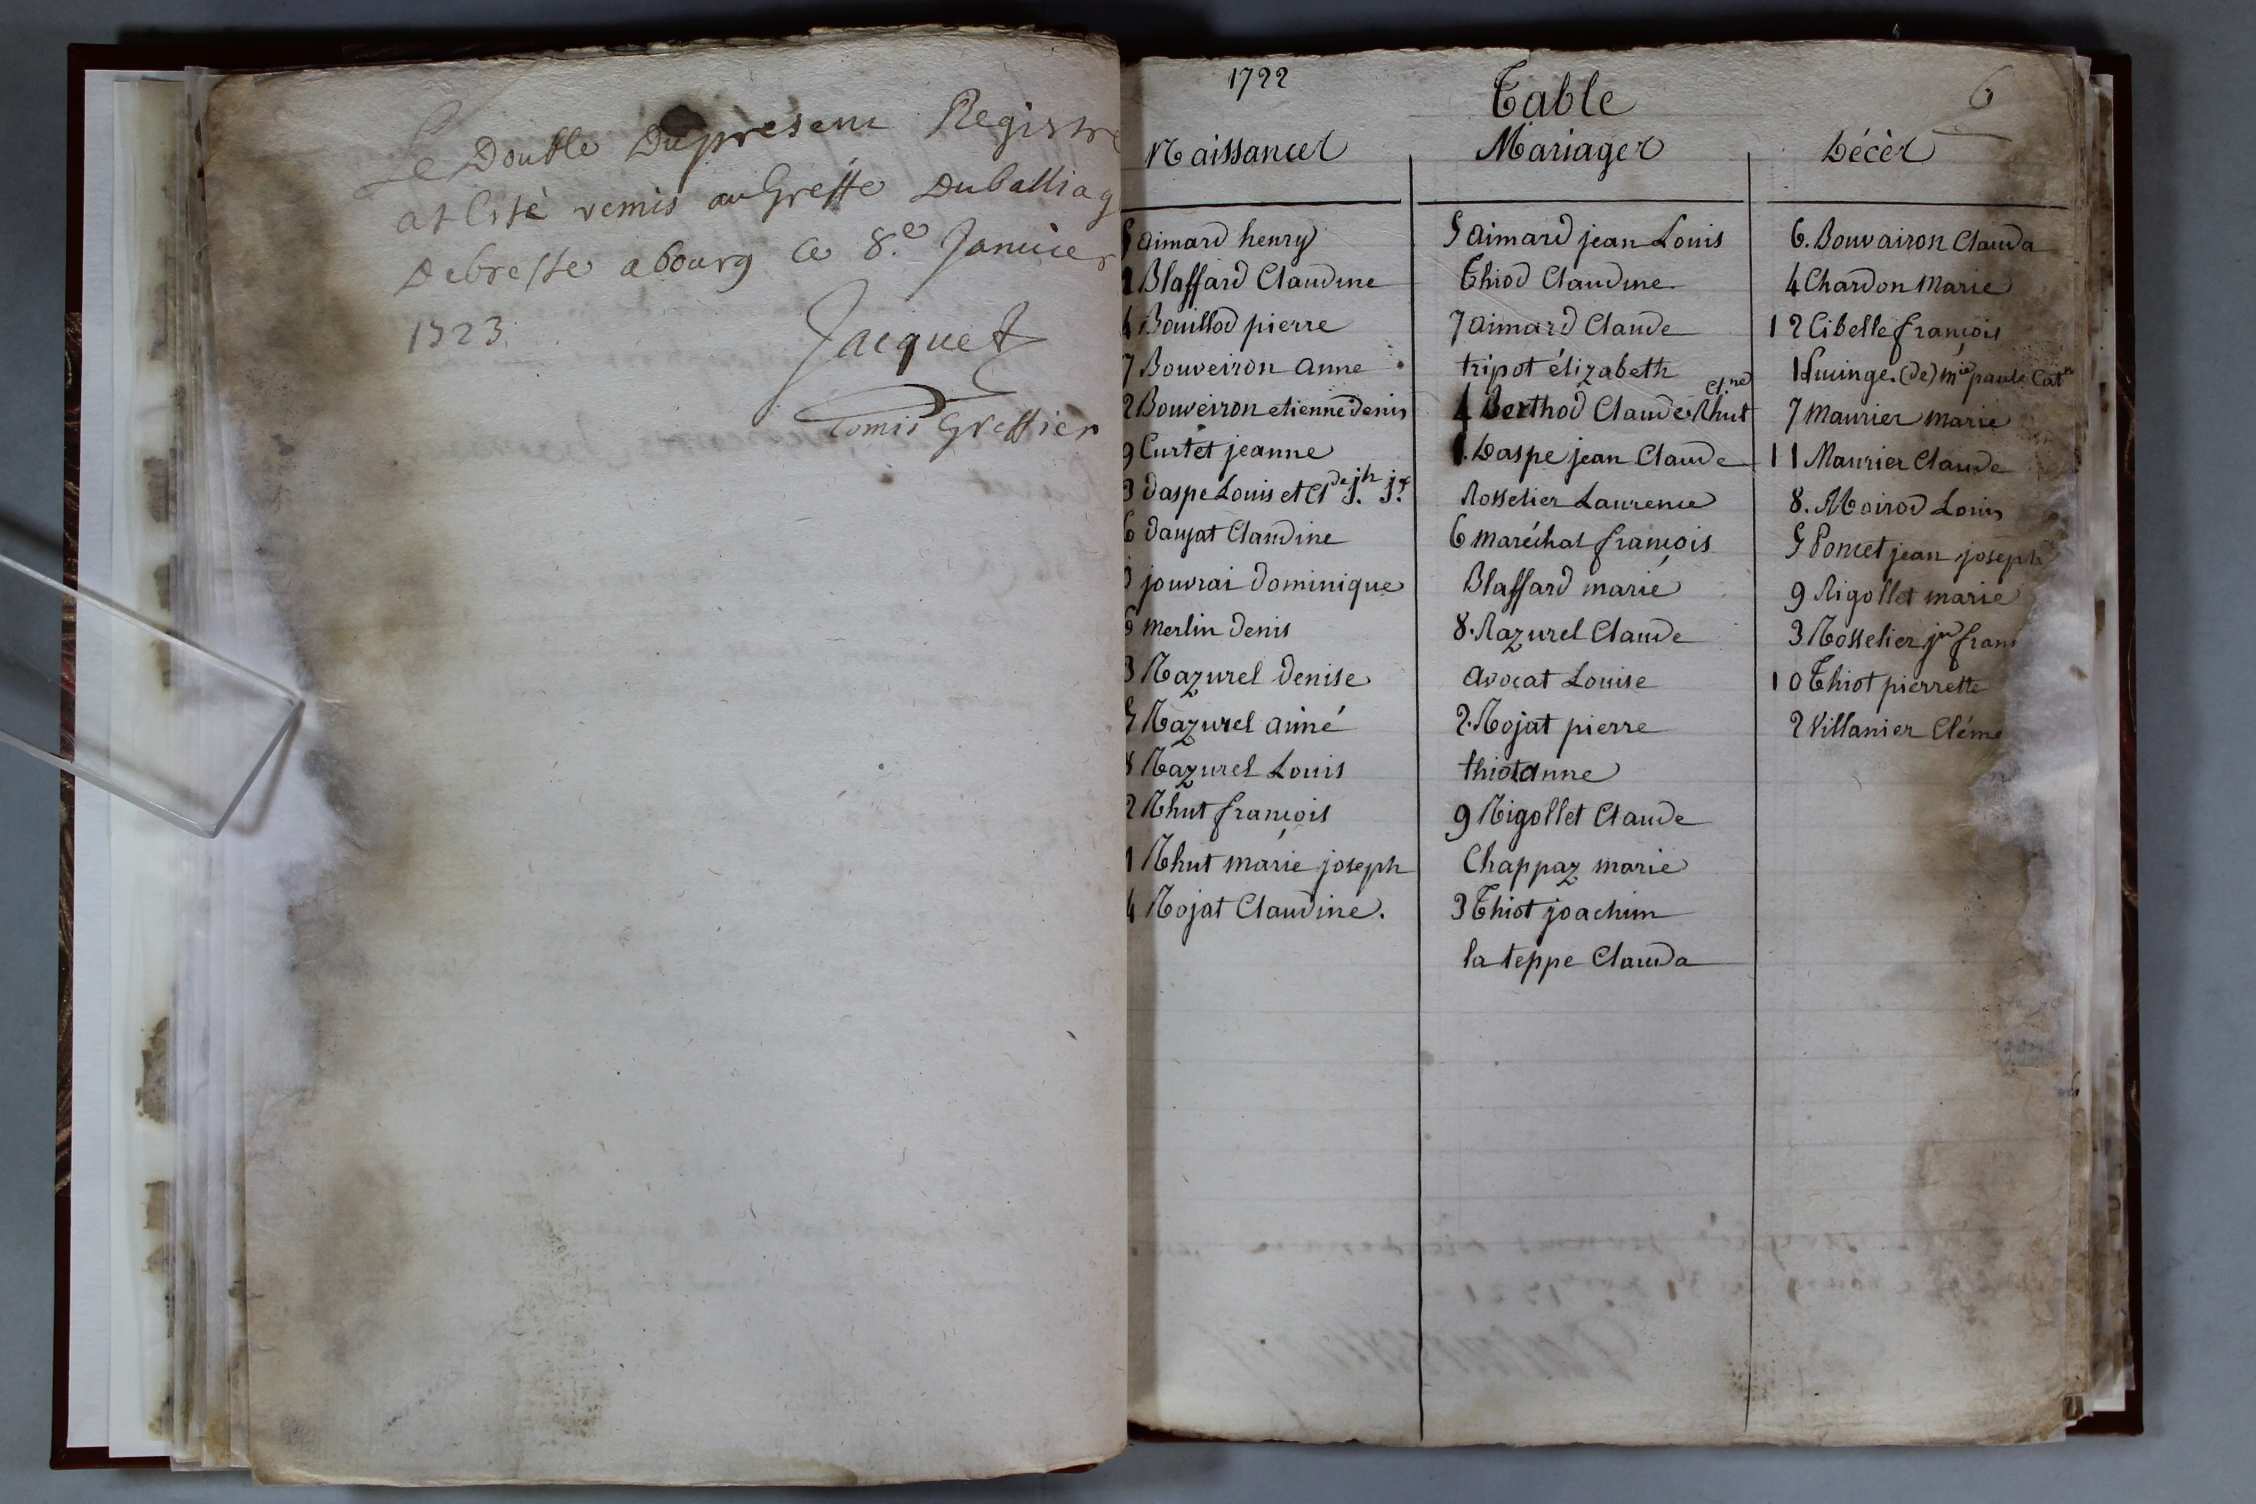 Le Double Dupresent Registre
at Esté remis au Greffe Duballiag
Debresse abourg Ce 8.e Janvier
1723.
Jacquet
Comis Greffier
1722
Table
6
Naissances
aimard henry
Blaffard Claudine
Bouillod pierre
7 Bouveiron anne
2 Bouveiron etienne denis
9 Curtet jeanne
3 daspe Louis et Cl.de j.h j.e
6 daujat Claudine
jouvrai dominique
merlin denis
3 Razurel denise
Razurel aimé
8 Razurel Louis
2 Rhut françois
1 Rhut marie joseph
4 Rojat Claudine.
Mariages
5 aimard jean Louis
Thiod Claudine
7 aimard Claude
tripot élizabeth
4 Berthod Claude Rhut Cl.ne
1. Daspe jean Claude
Rosselier Laurence
6 maréchal françois
Blaffard marie
8. Razurel Claude
avocat Louise
2. Rojat pierre
thiot anne
9 Rigollet Claude
Chappaz marie
3 Thiot joachim
la teppe Clauda
Décès
6. Bouvairon Clauda
4 Chardon Marie
12 Cibelle françois
(de) m.ie paule Cat.e
7 Maurier marie
11 Maurier Claude
8. Moirod Louis
5 Poncet jean joseph
9 Rigollet marie
3 Rosselier j.n fran
10 Thiot pierrette
2 Villanier Cléme